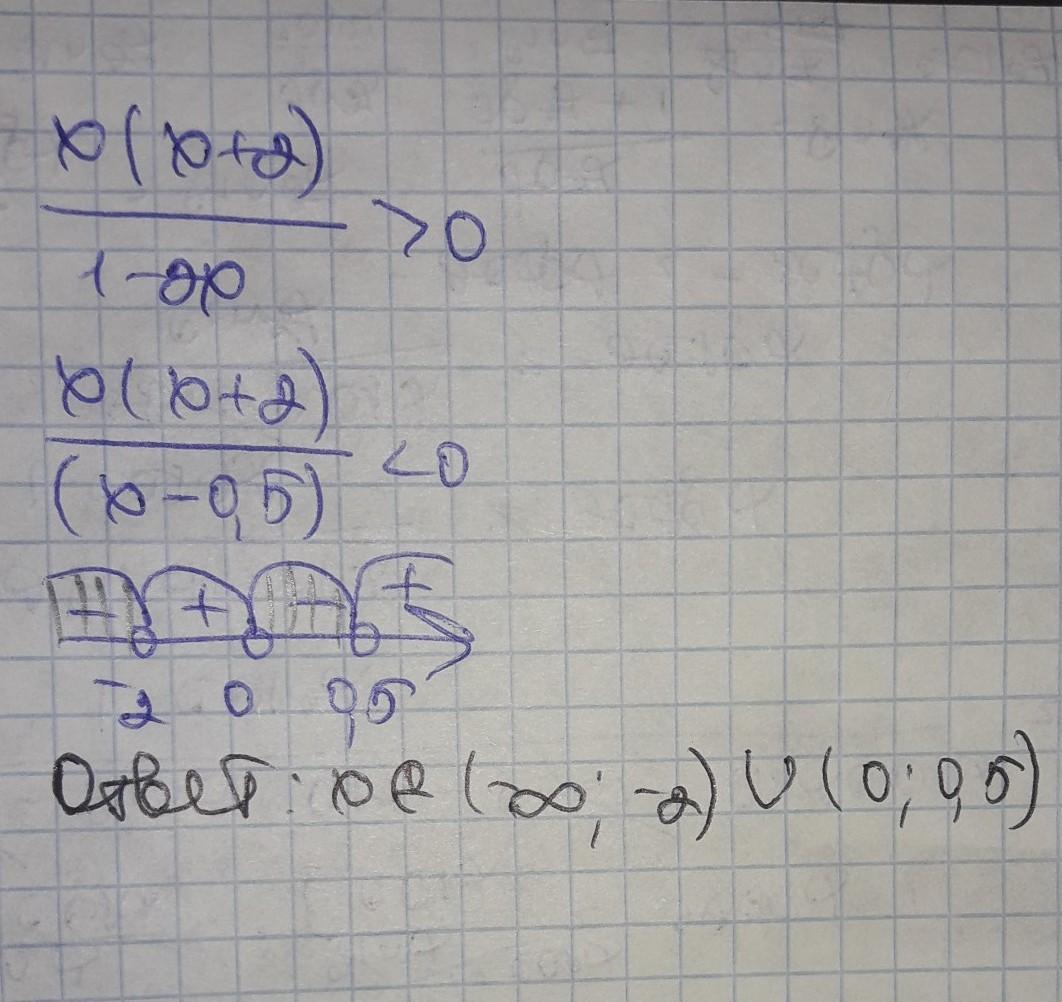 x(x+2)
1-2x
>0
x(x+2)
(x-0,5)
<0
- + - +
-2 0 0,5
Ответ: x∈(-∞; -2)∪(0; 0,5)